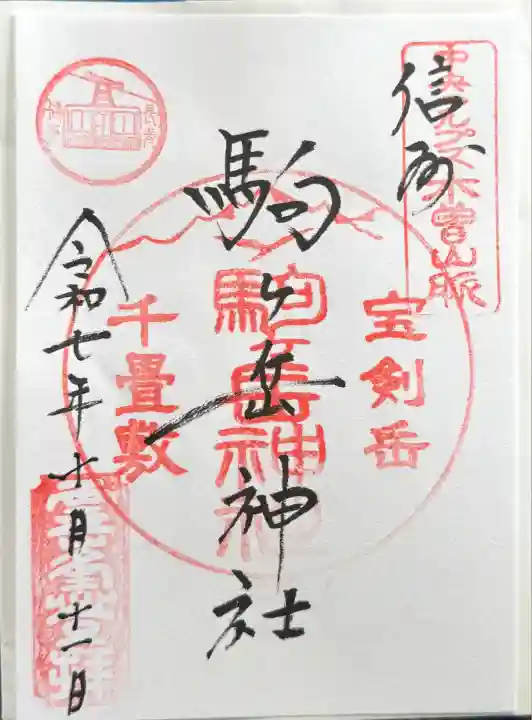 中央アルプス木曽山脈
信州
宝剣岳
駒ヶ岳神社
駒ヶ岳神社
千畳敷
令和七年十月十一日